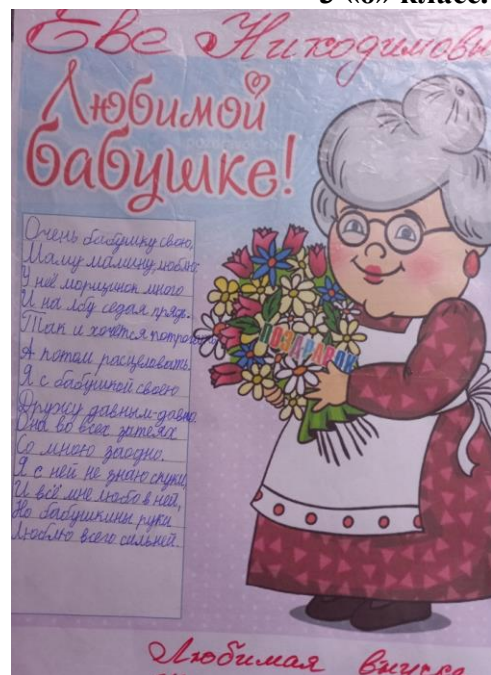 3 «в» класс.
Еве Никодимовы
Любимой
бабушке!
Очень бабушку свою,
Маму мамину, люблю.
У неё морщинок много
И на лбу седая прядь.
Так и хочется потрогать,
А потом расцеловать.
Я с бабушкой своею
Дружу давным-давно.
Она во всех затеях
Со мною заодно.
Я с ней не знаю скуки,
И всё мне любо в ней,
Но бабушкины руки
Люблю всего сильней.
Любимая внучка